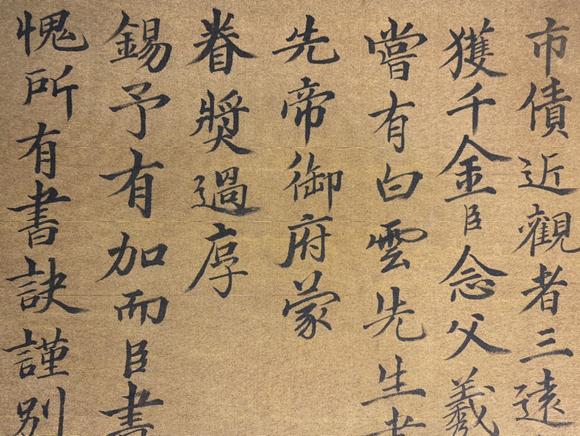 市債近觀者三遠
獲千金臣念父羲
嘗有白雲先生書
先帝御府蒙
眷獎過厚
錫予有加而臣書
愧所有書訣謹別